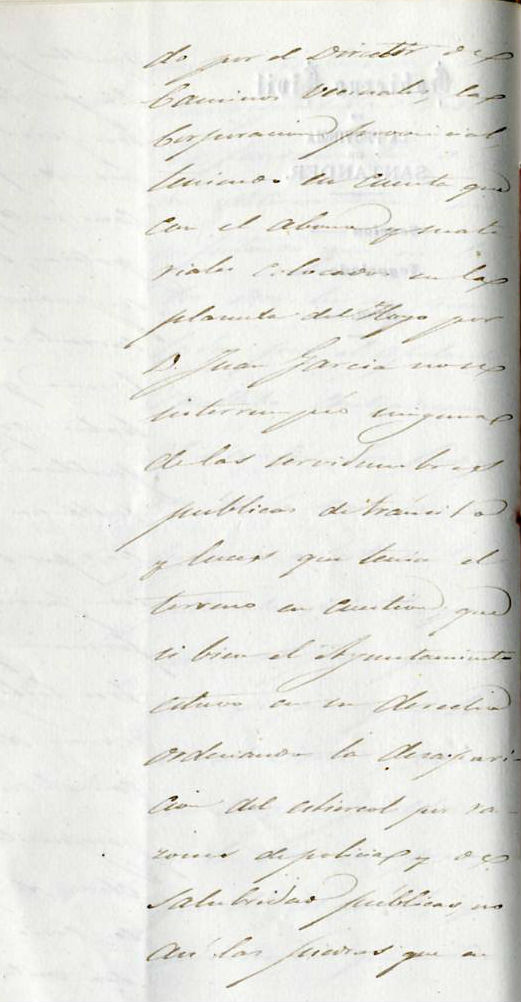 do por el Director de
Caminos Vecinales, la
Corporacion provincial,
teniendo en cuenta que
con el abono y mate
riales colocados en la
planuca del Hoyo por
D. Juan Garcia no se
interrumpió ninguna
de las servidumbres
públicas de tránsito
y luces que tenia el
terreno en cuestion, que
si bien el Ayuntamiento
estuvo en su derecho
ordenando la desapari-
cion del estiercol por ra-
zones de policia y de
salubridad pública, no
asi las piedras que en